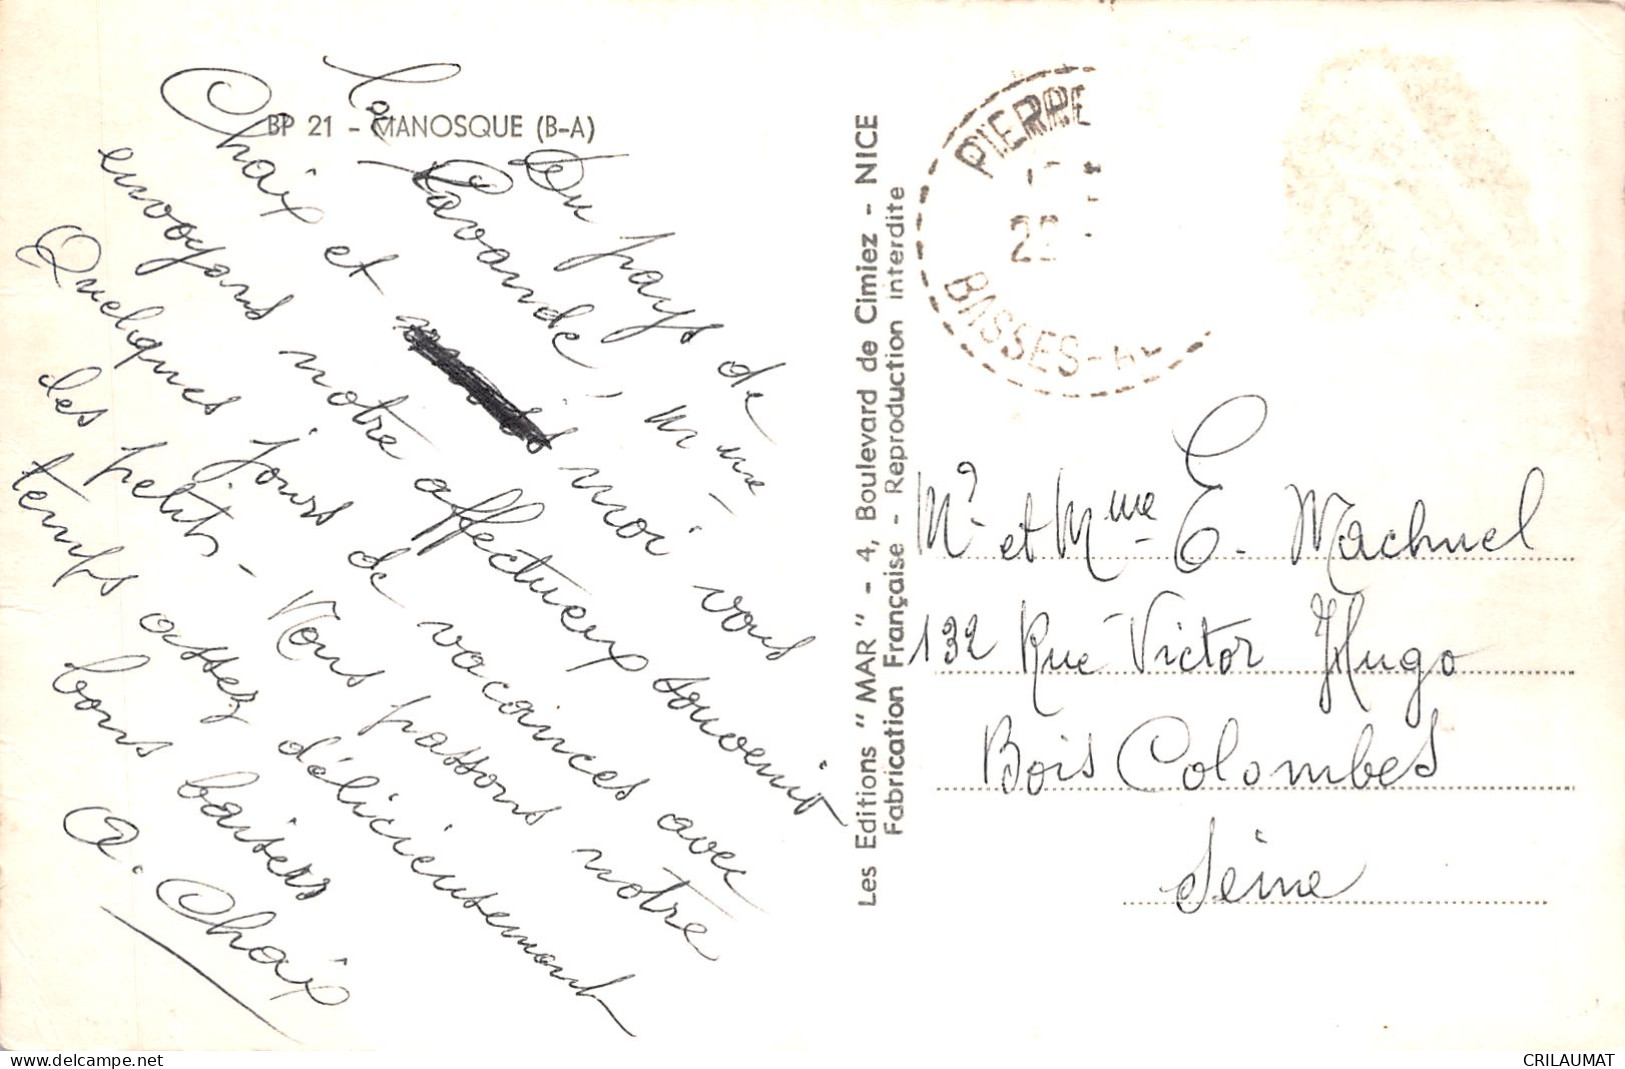 BP 21 - MANOSQUE (B-A)
Du pays de
la Lavande, Mme
Chaix et moi vous
envoyons notre affectueux souvenir
Quelques jours de vacances avec
les petits - Nous passons notre
temps assez délicieusement
bons baisers
A. Chaix
Les Editions "MAR" - 4, Boulevard de Cimiez - NICE
Fabrication Française - Reproduction interdite
PIERRE
BASSES-AL
Mr et Mme E. Machuel
132 Rue Victor Hugo
Bois Colombes
Seine
CRILAUMAT